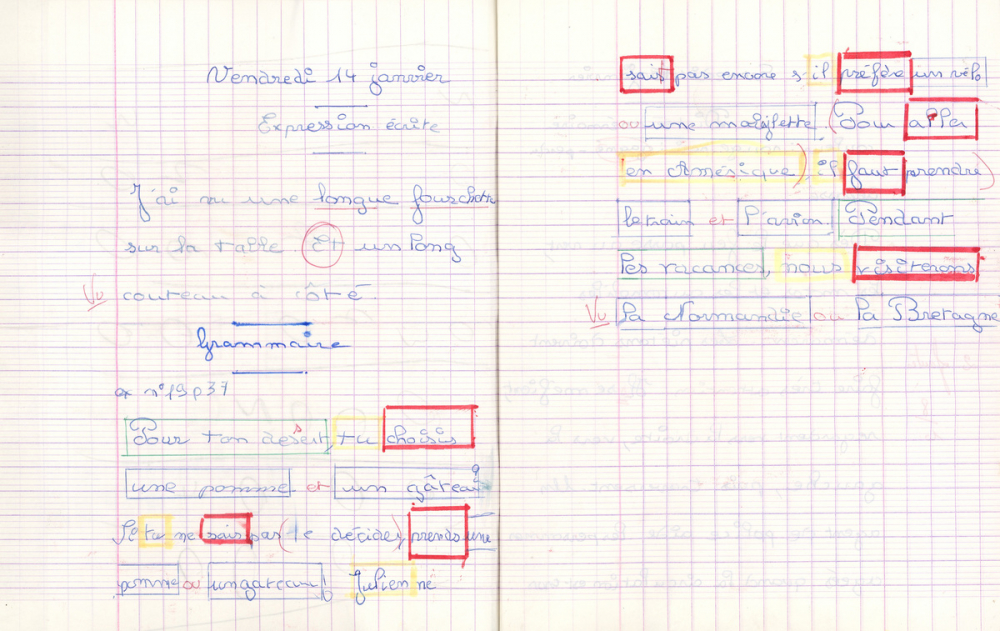 Vendredi 14 janvier
Expression écrite
J'ai vu une longue fourchette
sur la table. Et un long
Vu couteau à côté.
Grammaire
ex n°19 p 37
Pour ton desert, tu choisis
une pomme et un gâteau
Si tu ne sais pas (te décider) prends une
pomme ou un gateau! Julien ne
sait pas encore s'il préfère un vélo
ou une mobylette. (Pour aller
en Amérique) il faut prendre)
le train et l'avion. Pendant
les vacances, nous visiterons
Vu la Normandie ou la Bretagne